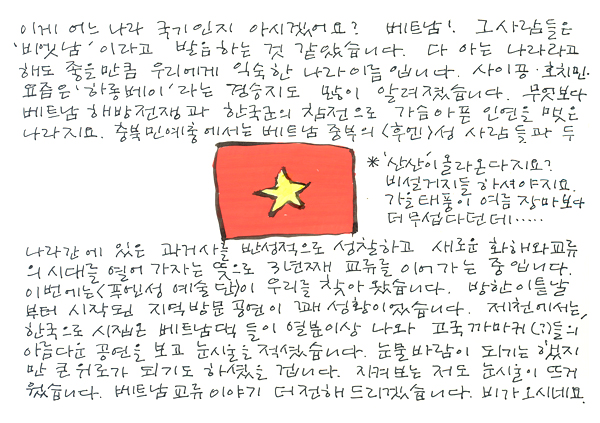 이게 어느 나라 국기인지 아시겠어요? 베트남! 그 사람들은
'비엣남' 이라고 발음하는 것 같았습니다. 다 아는 나라라고
해도 좋을만큼 우리에게 익숙한 나라이름입니다. 사이공·호치민·
요즘은 '하롱베이' 라는 경승지도 많이 알려졌습니다. 무엇보다
베트남 해방전쟁과 한국군의 참전으로 가슴아픈 인연을 맺은
나라지요. 충북민예총에서는 베트남 중부의 〈후옌〉성 사람들과 두
*'산산'이 올라온다지요?
비설거지들 하셔야지요.
가을태풍이 여름 장마보다
더 무섭다던데.....
나라간에 있은 과거사를 반성적으로 성찰하고 새로운 화해와 교류
의 시대를 열어 가자는 뜻으로 3년째 교류를 이어가는 중입니다.
이번에는 〈푸옌성 예술단〉이 우리를 찾아 왔습니다. 방한 이틀날
부터 시작된 지역방문공연이 꽤 성황이었습니다. 제천에서는,
한국으로 시집온 베트남댁들이 열분이상 나와 고국까마귀(?)들의
아름다운 공연을 보고 눈시울을 적셨습니다. 눈물바람이 되기는 했지
만 큰 위로가 되기도 하셨을 겁니다. 지켜보는 저도 눈시울이 뜨거
웠습니다. 베트남교류 이야기 더 전해 드리겠습니다. 비가 오시네요.